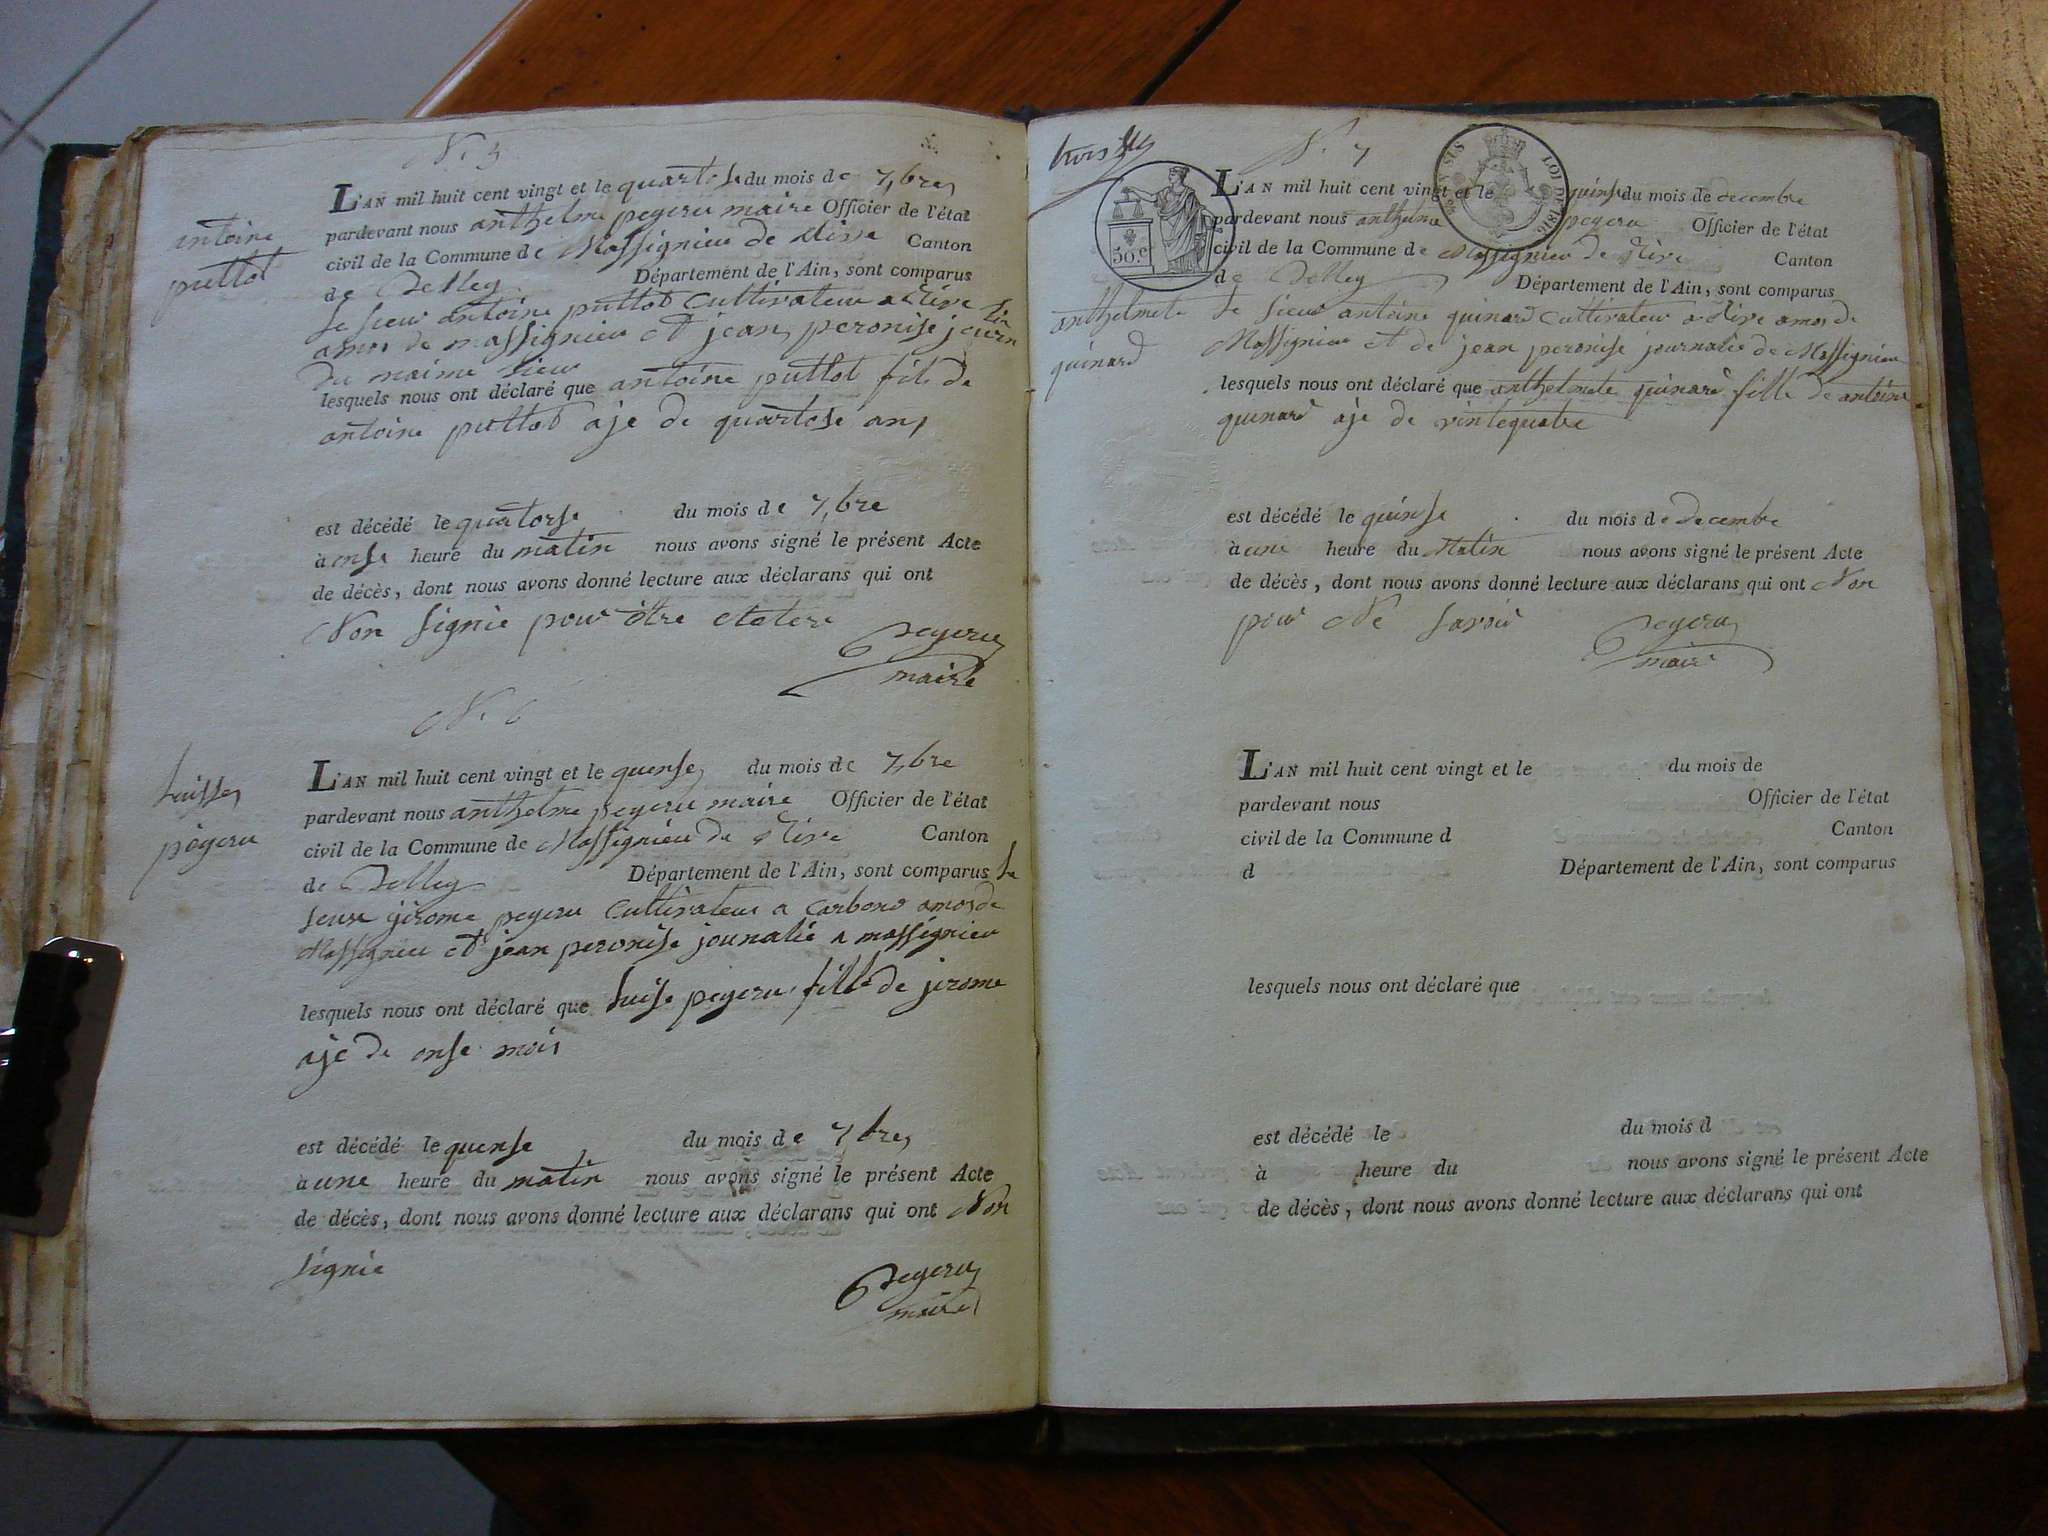 N. 5
antoine
puttod
L'AN mil huit cent vingt et le quartose du mois de 7,bre
pardevant nous anthelme pegeru maire Officier de l'état
civil de la Commune de Massignieu de Rive Canton
de Belley Département de l'Ain, sont comparus
le sieur antoine puttod cultivateur a Rive
amos de massignieu et jean peronise journ
du maime lieu
lesquels nous ont déclaré que antoine puttod fils de
antoine puttod aje de quartose ans
est décédé le quatorse du mois de 7,bre
à onse heure du matin nous avons signé le présent Acte
de décès, dont nous avons donné lecture aux déclarans qui ont
Non signie pour être
pegeru
maire
N. 6
Luisse
pegeru
L'AN mil huit cent vingt et le quense du mois de 7,bre
pardevant nous anthelme pegeru maire Officier de l'état
civil de la Commune de Massignieu de Rive Canton
de Belley Département de l'Ain, sont comparus Le
seur jirome pegeru cultivateur a carbono amos de
Massignieu et jean peronise jounalié a massignieu
lesquels nous ont déclaré que Luise pegeru fille de jerome
aje de onse mois
est décédé le quense du mois de 7,bre
à une heure du matin nous avons signé le présent Acte
de décès, dont nous avons donné lecture aux déclarans qui ont Non
signie
pegeru
maire
trois
N. 7
50.c
LOI DE 1816
anthelmete
quinard
L'AN mil huit cent vingt et le quinse du mois de decembre
pardevant nous anthelme pegeru Officier de l'état
civil de la Commune de Massignieu de Rive Canton
de Belley Département de l'Ain, sont comparus
le sieur antoine quinard cultivateur a Rive amos de
Massignieu et de jean peronise journalié de Massignieu
lesquels nous ont déclaré que anthelmete quinard fille de antoine
quinard aje de vintequatre
est décédé le quinse du mois de decembre
à une heure du Matin nous avons signé le présent Acte
de décès, dont nous avons donné lecture aux déclarans qui ont Non
pour Ne savoir
pegeru
maire
L'AN mil huit cent vingt et le du mois de
pardevant nous Officier de l'état
civil de la Commune d Canton
d Département de l'Ain, sont comparus
lesquels nous ont déclaré que
est décédé le du mois d
à heure du nous avons signé le présent Acte
de décès, dont nous avons donné lecture aux déclarans qui ont